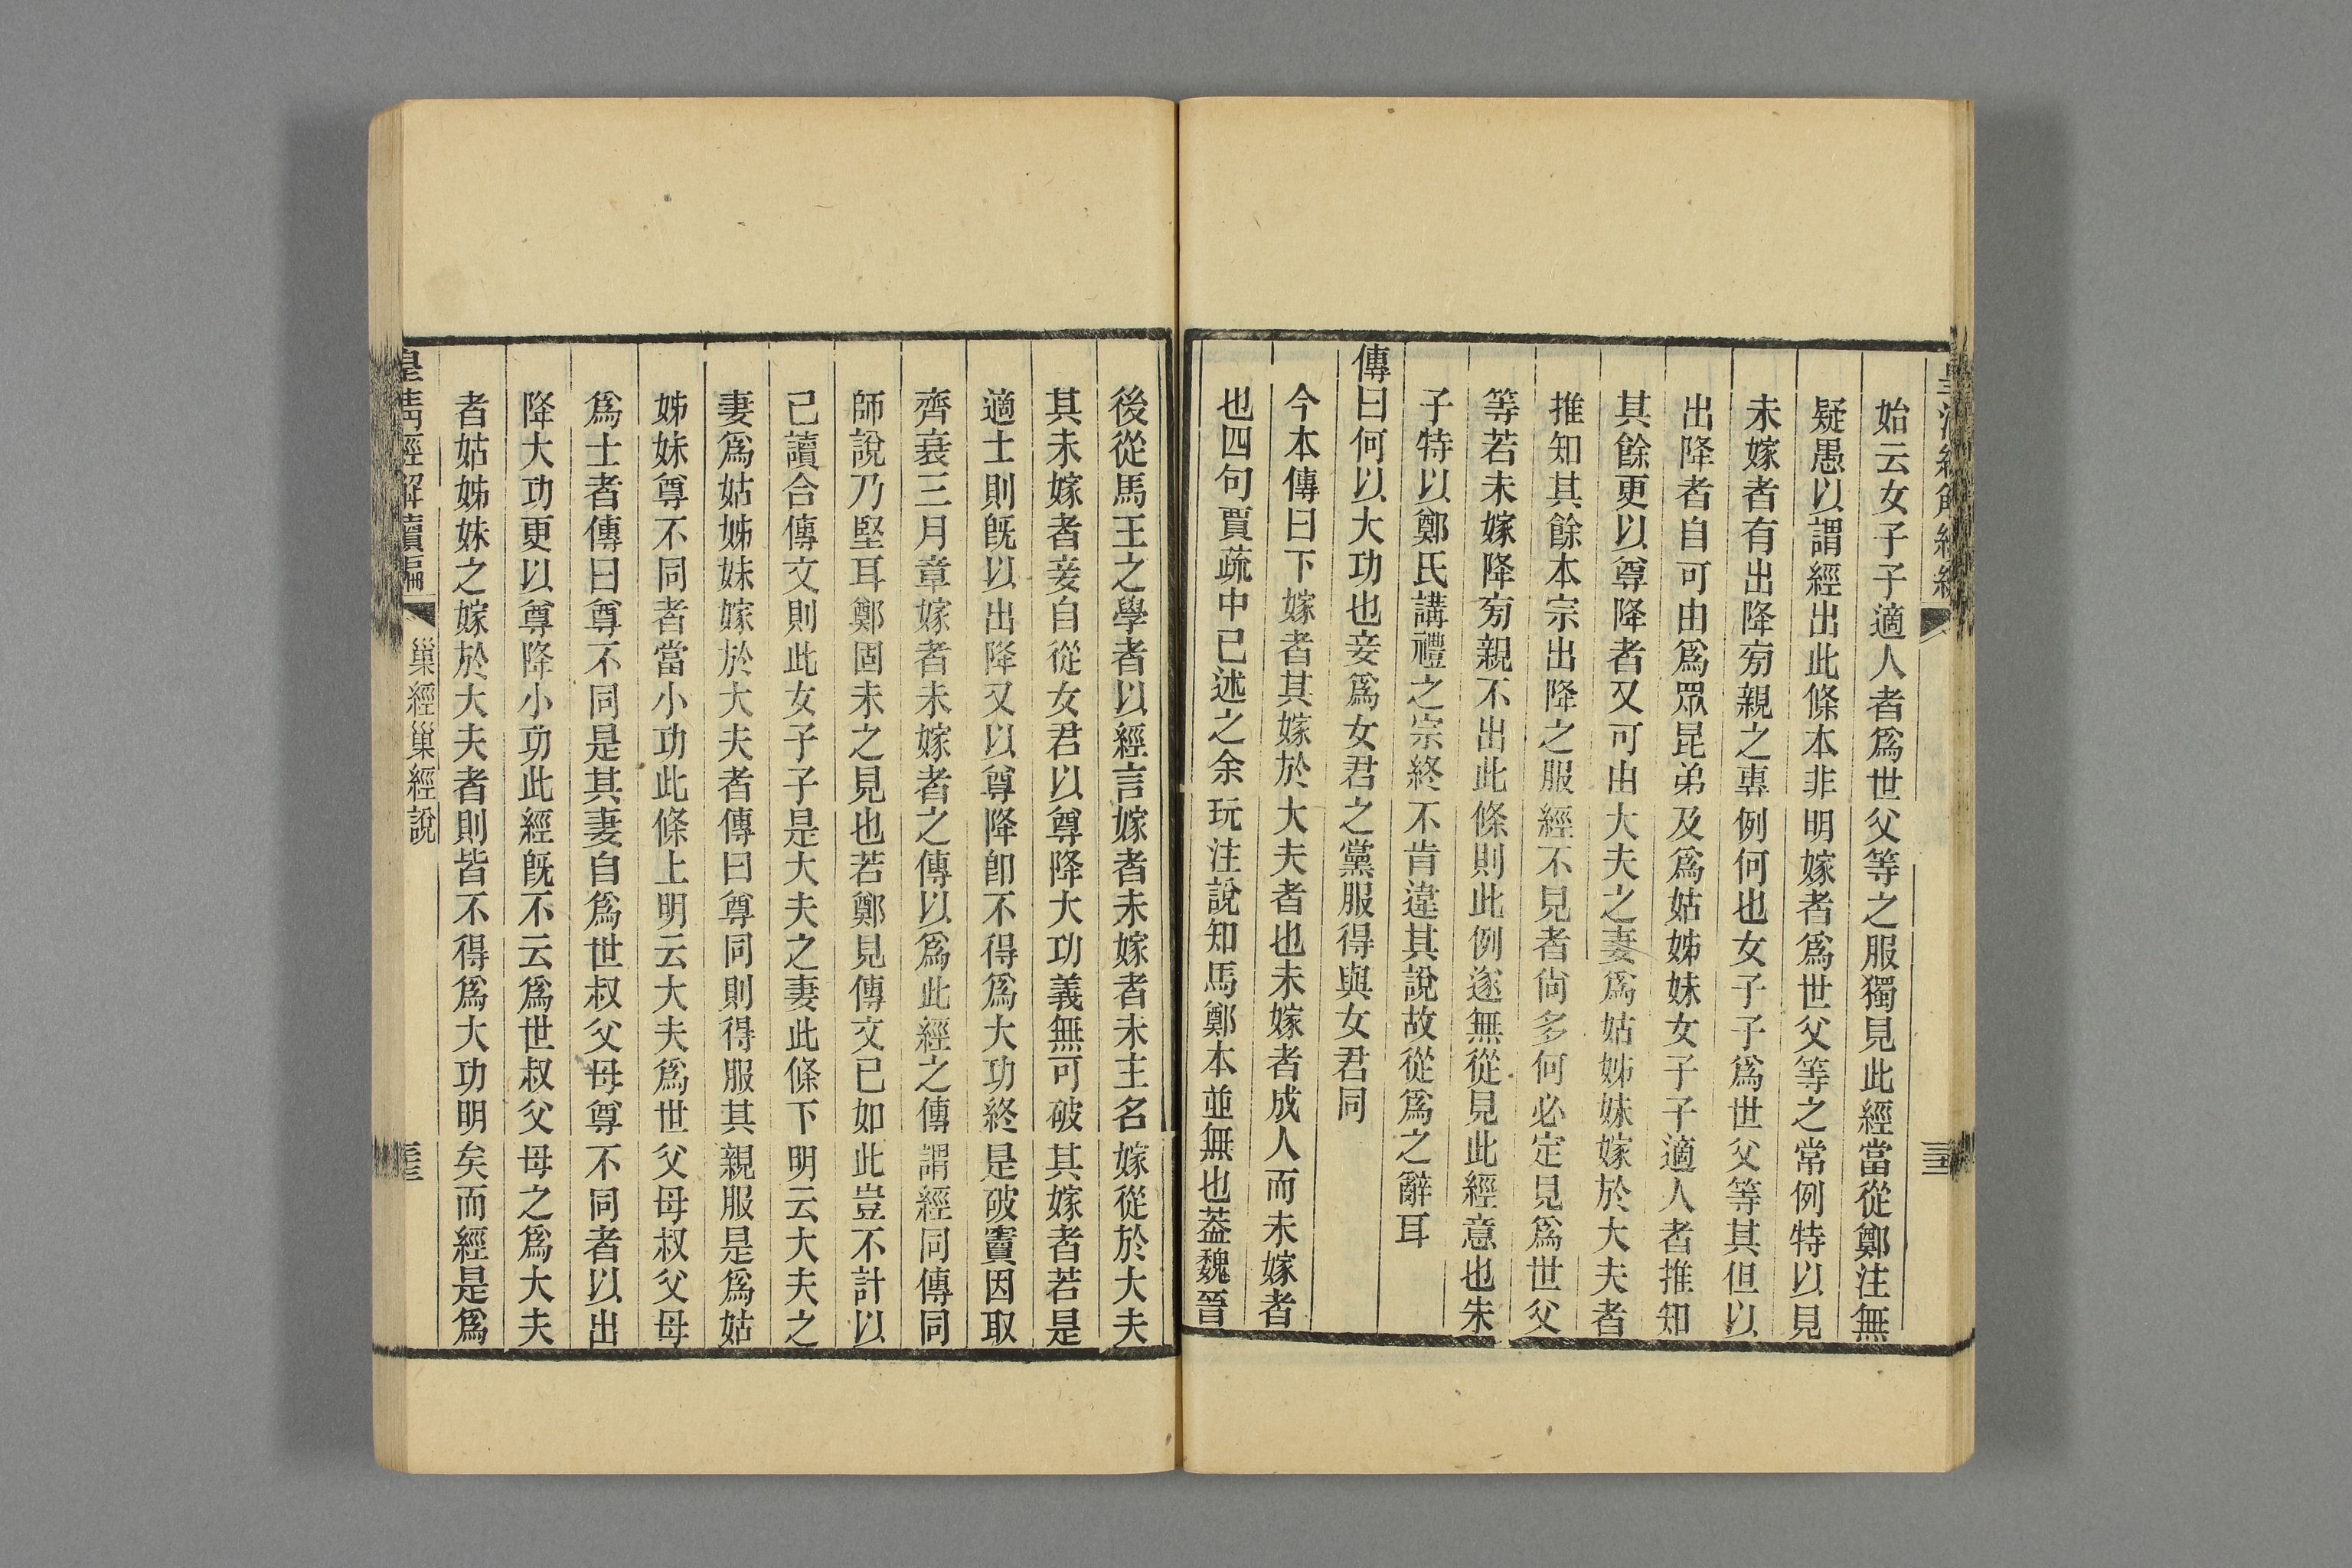 始云女子子適人者爲世父等之服獨見此經當從鄭注無
疑愚以謂經出此條本非明嫁者爲世父等之常例特以見
未嫁者有出降㫄親之專例何也女子子爲世父等其但以
出降者自可由爲眾昆弟及爲姑姊妹女子子適人者推知
其餘更以尊降者又可由大夫之妻爲姑姊妹嫁於大夫者
推知其餘本宗出降之服經不見者尙多何必定見爲世父
等若未嫁降㫄親不出此條則此例遂無從見此經意也朱
子特以鄭氏講禮之宗終不肯違其說故從爲之辭耳
傳曰何以大功也妾爲女君之黨服得與女君同
今本傳曰下嫁者其嫁於大夫者也未嫁者成人而未嫁者
也四句賈疏中已述之余玩注說知馬鄭本並無也葢魏晉
後從馬王之學者以經言嫁者未嫁者未主名嫁從於大夫
其未嫁者妾自從女君以尊降大功義無可破其嫁者若是
適士則旣以出降又以尊降卽不得爲大功終是破竇因取
齊衰三月章嫁者未嫁者之傳以爲此經之傳謂經同傳同
師說乃堅耳鄭固未之見也若鄭見傳文已如此豈不計以
已讀合傳文則此女子子是大夫之妻此條下明云大夫之
妻爲姑姊妹嫁於大夫者傳曰尊同則得服其親服是爲姑
姊妹尊不同者當小功此條上明云大夫爲世父母叔父母
爲士者傳曰尊不同是其妻自爲世叔父母尊不同者以出
降大功更以尊降小功此經旣不云爲世叔父母之爲大夫
者姑姊妹之嫁於大夫者則皆不得爲大功明矣而經是爲
皇清經解續編
巢經巢經說